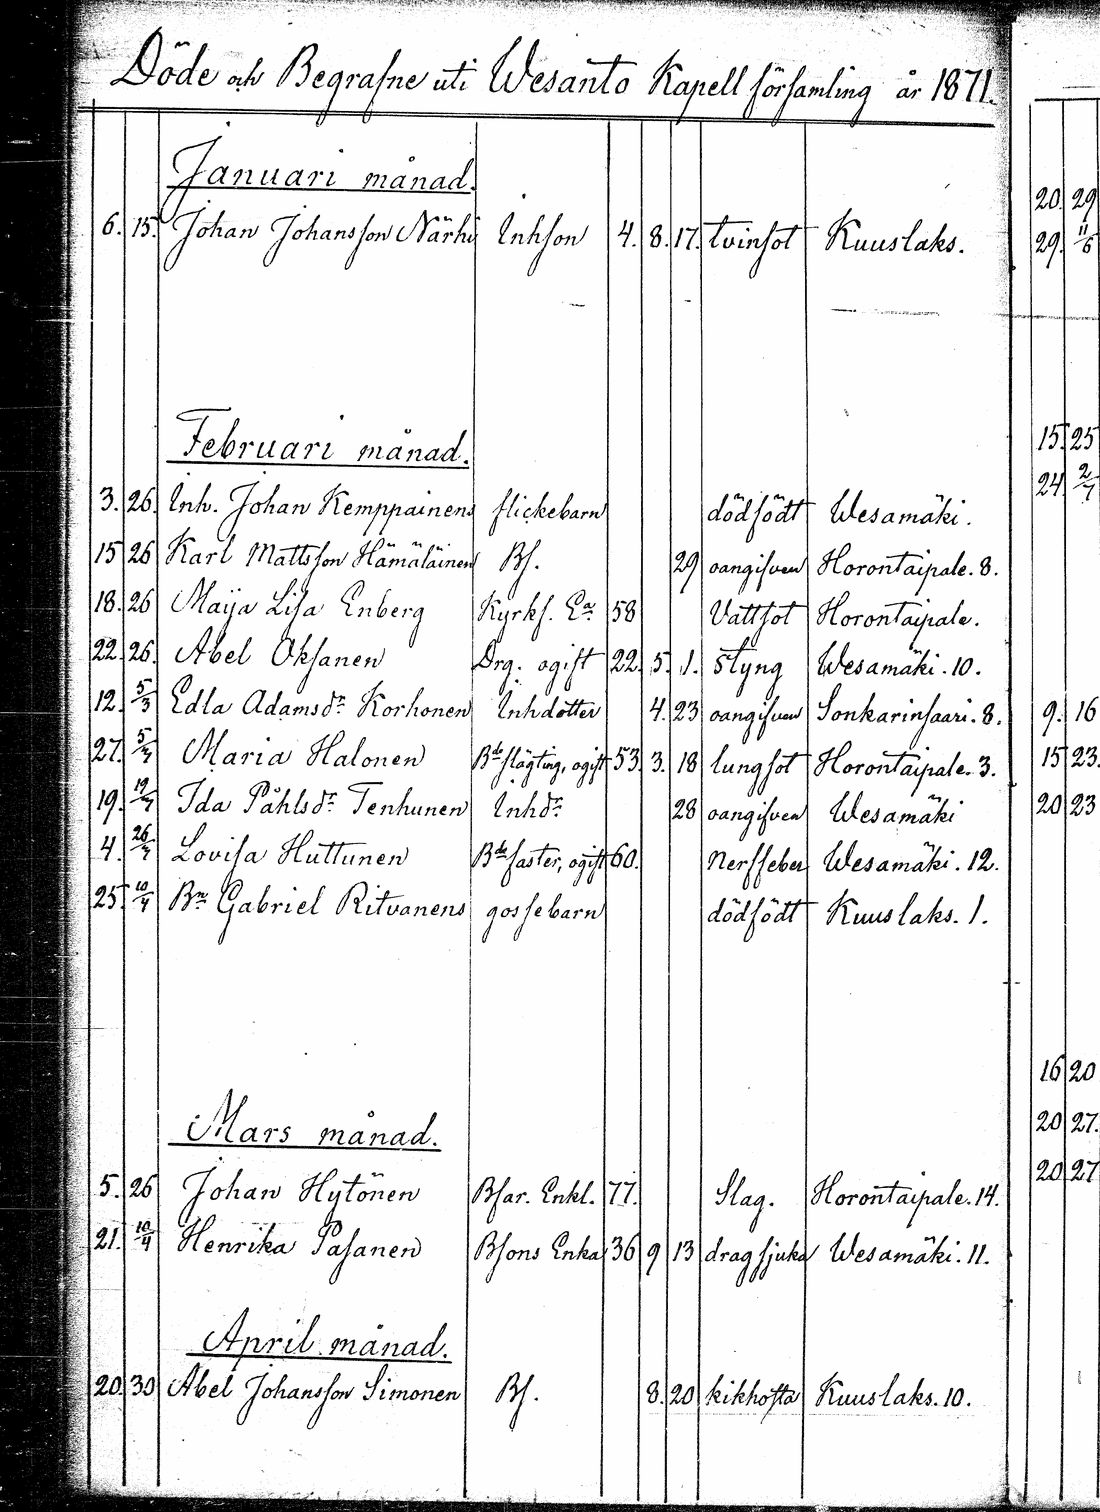 Döde och Begrafne uti Wesanto Kapellförsamling år 1871.
Januari månad.
6. 15. Johan Johansson Närhi Inhson 4. 8. 17. tvinsot Kuuslaks.
Februari månad.
3. 26. Inh. Johan Kemppainens flickebarn dödfödt Wesamäki.
15 26 Karl Mattsson Hämäläinen Bs. 29 oangifven Horontaipale. 8.
18. 26 Maija Lisa Enberg Kyrks. Ea 58 Vattsot Horontaipale.
22. 26. Abel Oksanen Drg. ogift 22. 5. 1. Styng Wesamäki. 10.
12. 5/3 Edla Adamsdr Korhonen Inhdotter 4. 23 oangifven Sonkarinsaari. 8.
27. 5/3 Maria Halonen Bde slägting, ogift 53. 3. 18 lungsot Horontaipale. 3.
19. 19/3 Ida Påhlsdr Tenhunen Inhdr 28 oangifven Wesamäki
4. 26/3 Lovisa Huttunen Bde faster, ogift 60. Nerffeber Wesamäki. 12.
25. 10/4 Bn Gabriel Ritvanens gossebarn dödfödt Kuuslaks. 1.
Mars månad.
5. 26 Johan Hytönen Bfar. Enkl. 77. Slag. Horontaipale. 14.
21. 10/4 Henrika Pasanen Bsons Enka 36 9 13 dragsjuka Wesamäki. 11.
April månad.
20. 30 Abel Johansson Simonen Bs. 8. 20 kikhosta Kuuslaks. 10.
20. 29
29. 11/6
15. 25
24 2/7
9. 16
15 23.
20 23
16 20
20 27.
20 27